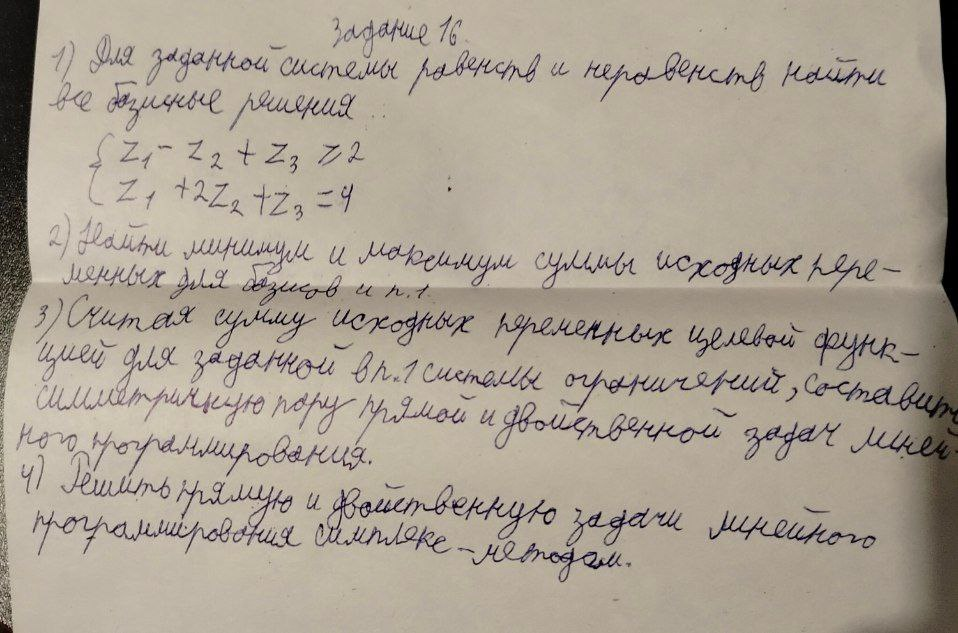 Задание 16.
1) Для заданной системы равенств и неравенств найти
все базисные решения
{ Z1 - Z2 + Z3 ≥ 2
{ Z1 + 2Z2 + Z3 = 4
2) Найти минимум и максимум суммы исходных пере-
менных для базисов и п.1
3) Считая сумму исходных переменных целевой функ-
цией для заданной в п.1 системы ограничений, составить
симметричную пару прямой и двойственной задач линей-
ного программирования.
4) Решить прямую и двойственную задачи линейного
программирования симплекс-методом.